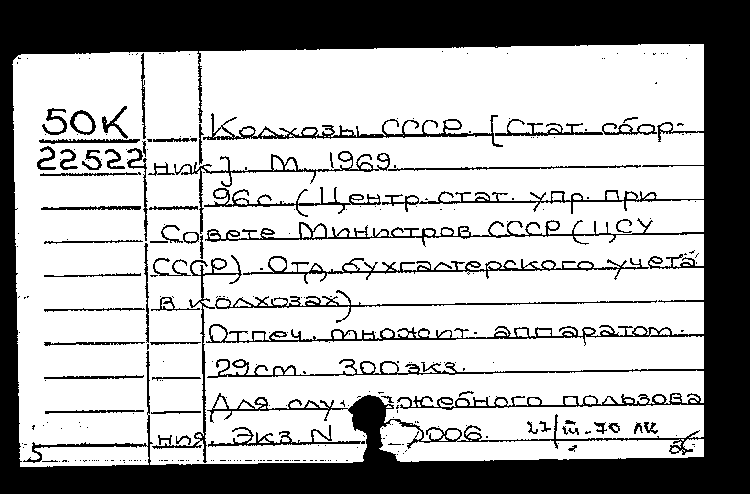 50К Колхозы СССР. [Стат. сбор-
22522 ник]. М., 1969.
96с. (Центр. стат. упр. при
Совете Министров СССР (ЦСУ
СССР). Отд. бухгалтерского учета
в колхозах).
Отпеч. множит. аппаратом.
29см. 300экз.
Для служебного пользова
ния. Экз. N 0006. 27/III-70
5